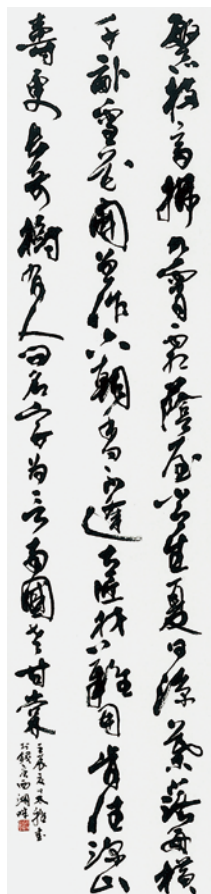 繁枝高拂九霄霜蔭屋常生夏日涼葉落每橫
千畝雪花開曾作六朝香不逢大匠材難用肯住深山
壽更長奇樹有人問名字為言南國老甘棠
壬辰夏日
於錢唐西湖畔